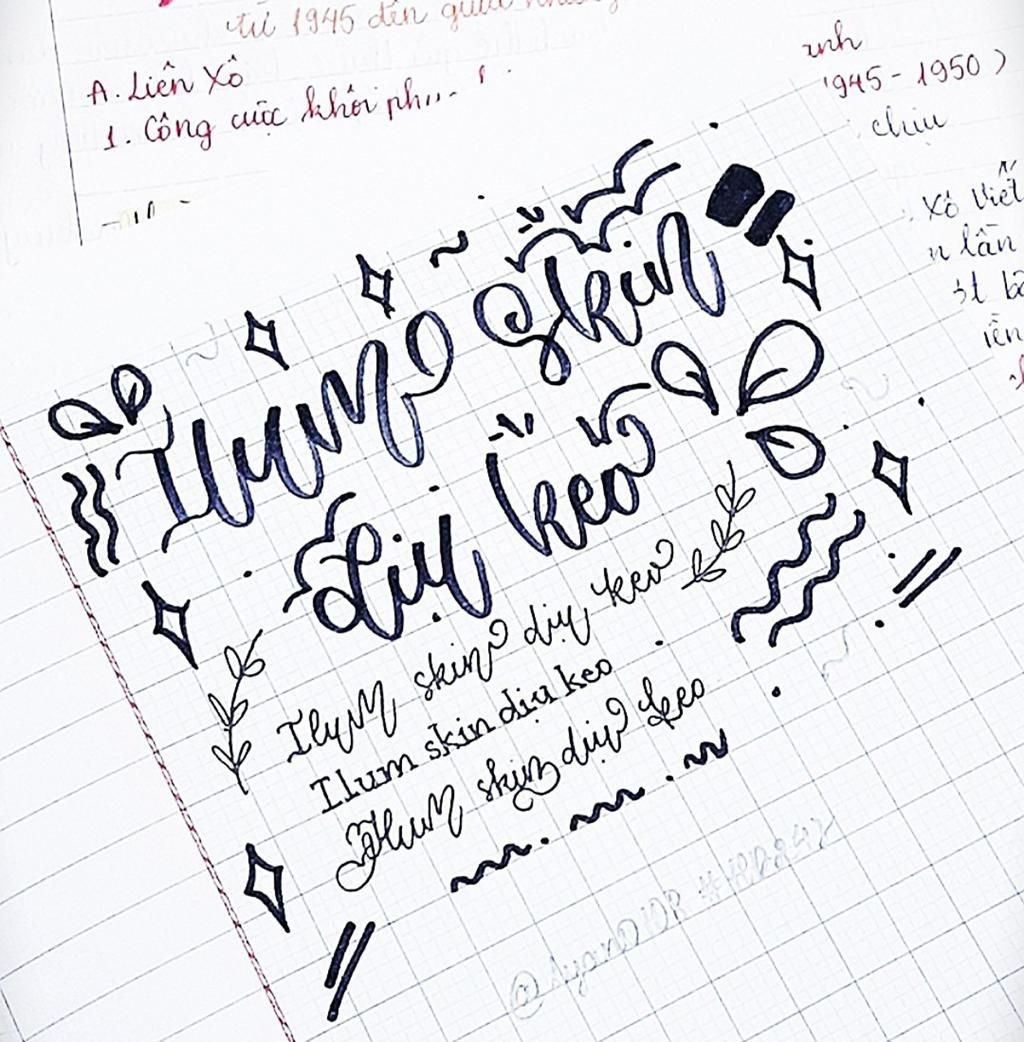 từ 1945 đến giữa những
A. Liên Xô
1. Công cuộc khôi
1945 - 1950)
chịu
Xô Viết
lần
Ilum skin
dịu keo
Ilum skin dịu keo
Ilum skin dịu keo
Ilum skin dịu keo